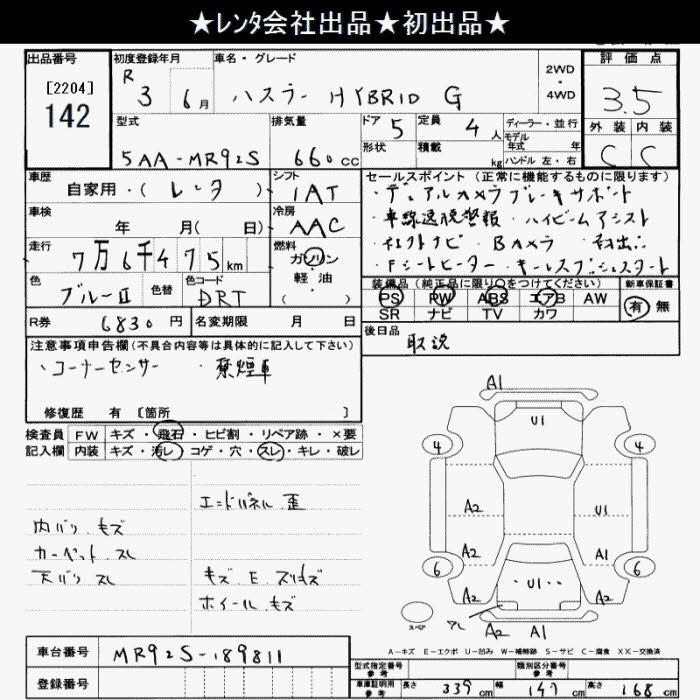 ★レンタ会社出品★初出品★
出品番号
[2204]
142
初度登録年月
R 3 6月
車名・グレード
ハスラー HYBRID G
2WD
・
4WD
評価点
3.5
外装 内装
C C
型式
5AA-MR92S
排気量
660cc
ドア 5
形状
定員 4人
積載 kg
ディーラー・並行
モデル
年式 年
ハンドル 左・右
車歴
自家用・(レンタ)
シフト
IAT
セールスポイント (正常に機能するものに限ります)
・デュアルカメラブレーキサポート
・車線逸脱警報・ハイビームアシスト
・Bカメラ・初出品
・Fシートヒーター・キーレスプッシュスタート
車検
年 月( 日)
冷房
AAC
走行
7万6千475km
燃料
ガソリン
軽油
色
ブルーII
色替
色コード
DRT
装備品(純正品に限り○をつけてください)
PS PW ABS エアB AW
SR ナビ TV カワ
新車保証書
有 無
R券
6830円
名変期限 月 日
後日品
取説
注意事項申告欄(不具合内容等は具体的に記入して下さい)
・コーナーセンサー ・禁煙車
修復歴 有 [箇所 ]
検査員
記入欄
FW キズ・飛石・ヒビ割・リペア跡・×要
内装 キズ・汚レ・コゲ・穴・スレ・キレ・破レ
エンドパネル.歪
内バリ.キズ
カーペット.スレ
天バリ スレ
キズ.E.スリキズ
ホイール.キズ
A1
U1
4 4
A2 U1
A2 A1
6 6
A2 A2
・U1・・
スペア
スレ
A2 A1
A-キズ E-エクボ U-凹み W-補修跡 S-サビ C-腐食 XX-交換済
車台番号
MR92S-189811
登録番号
型式指定番号
参考
類別区分番号
参考
車庫証明用
参考
長さ 339cm
幅 147cm
高さ 168cm